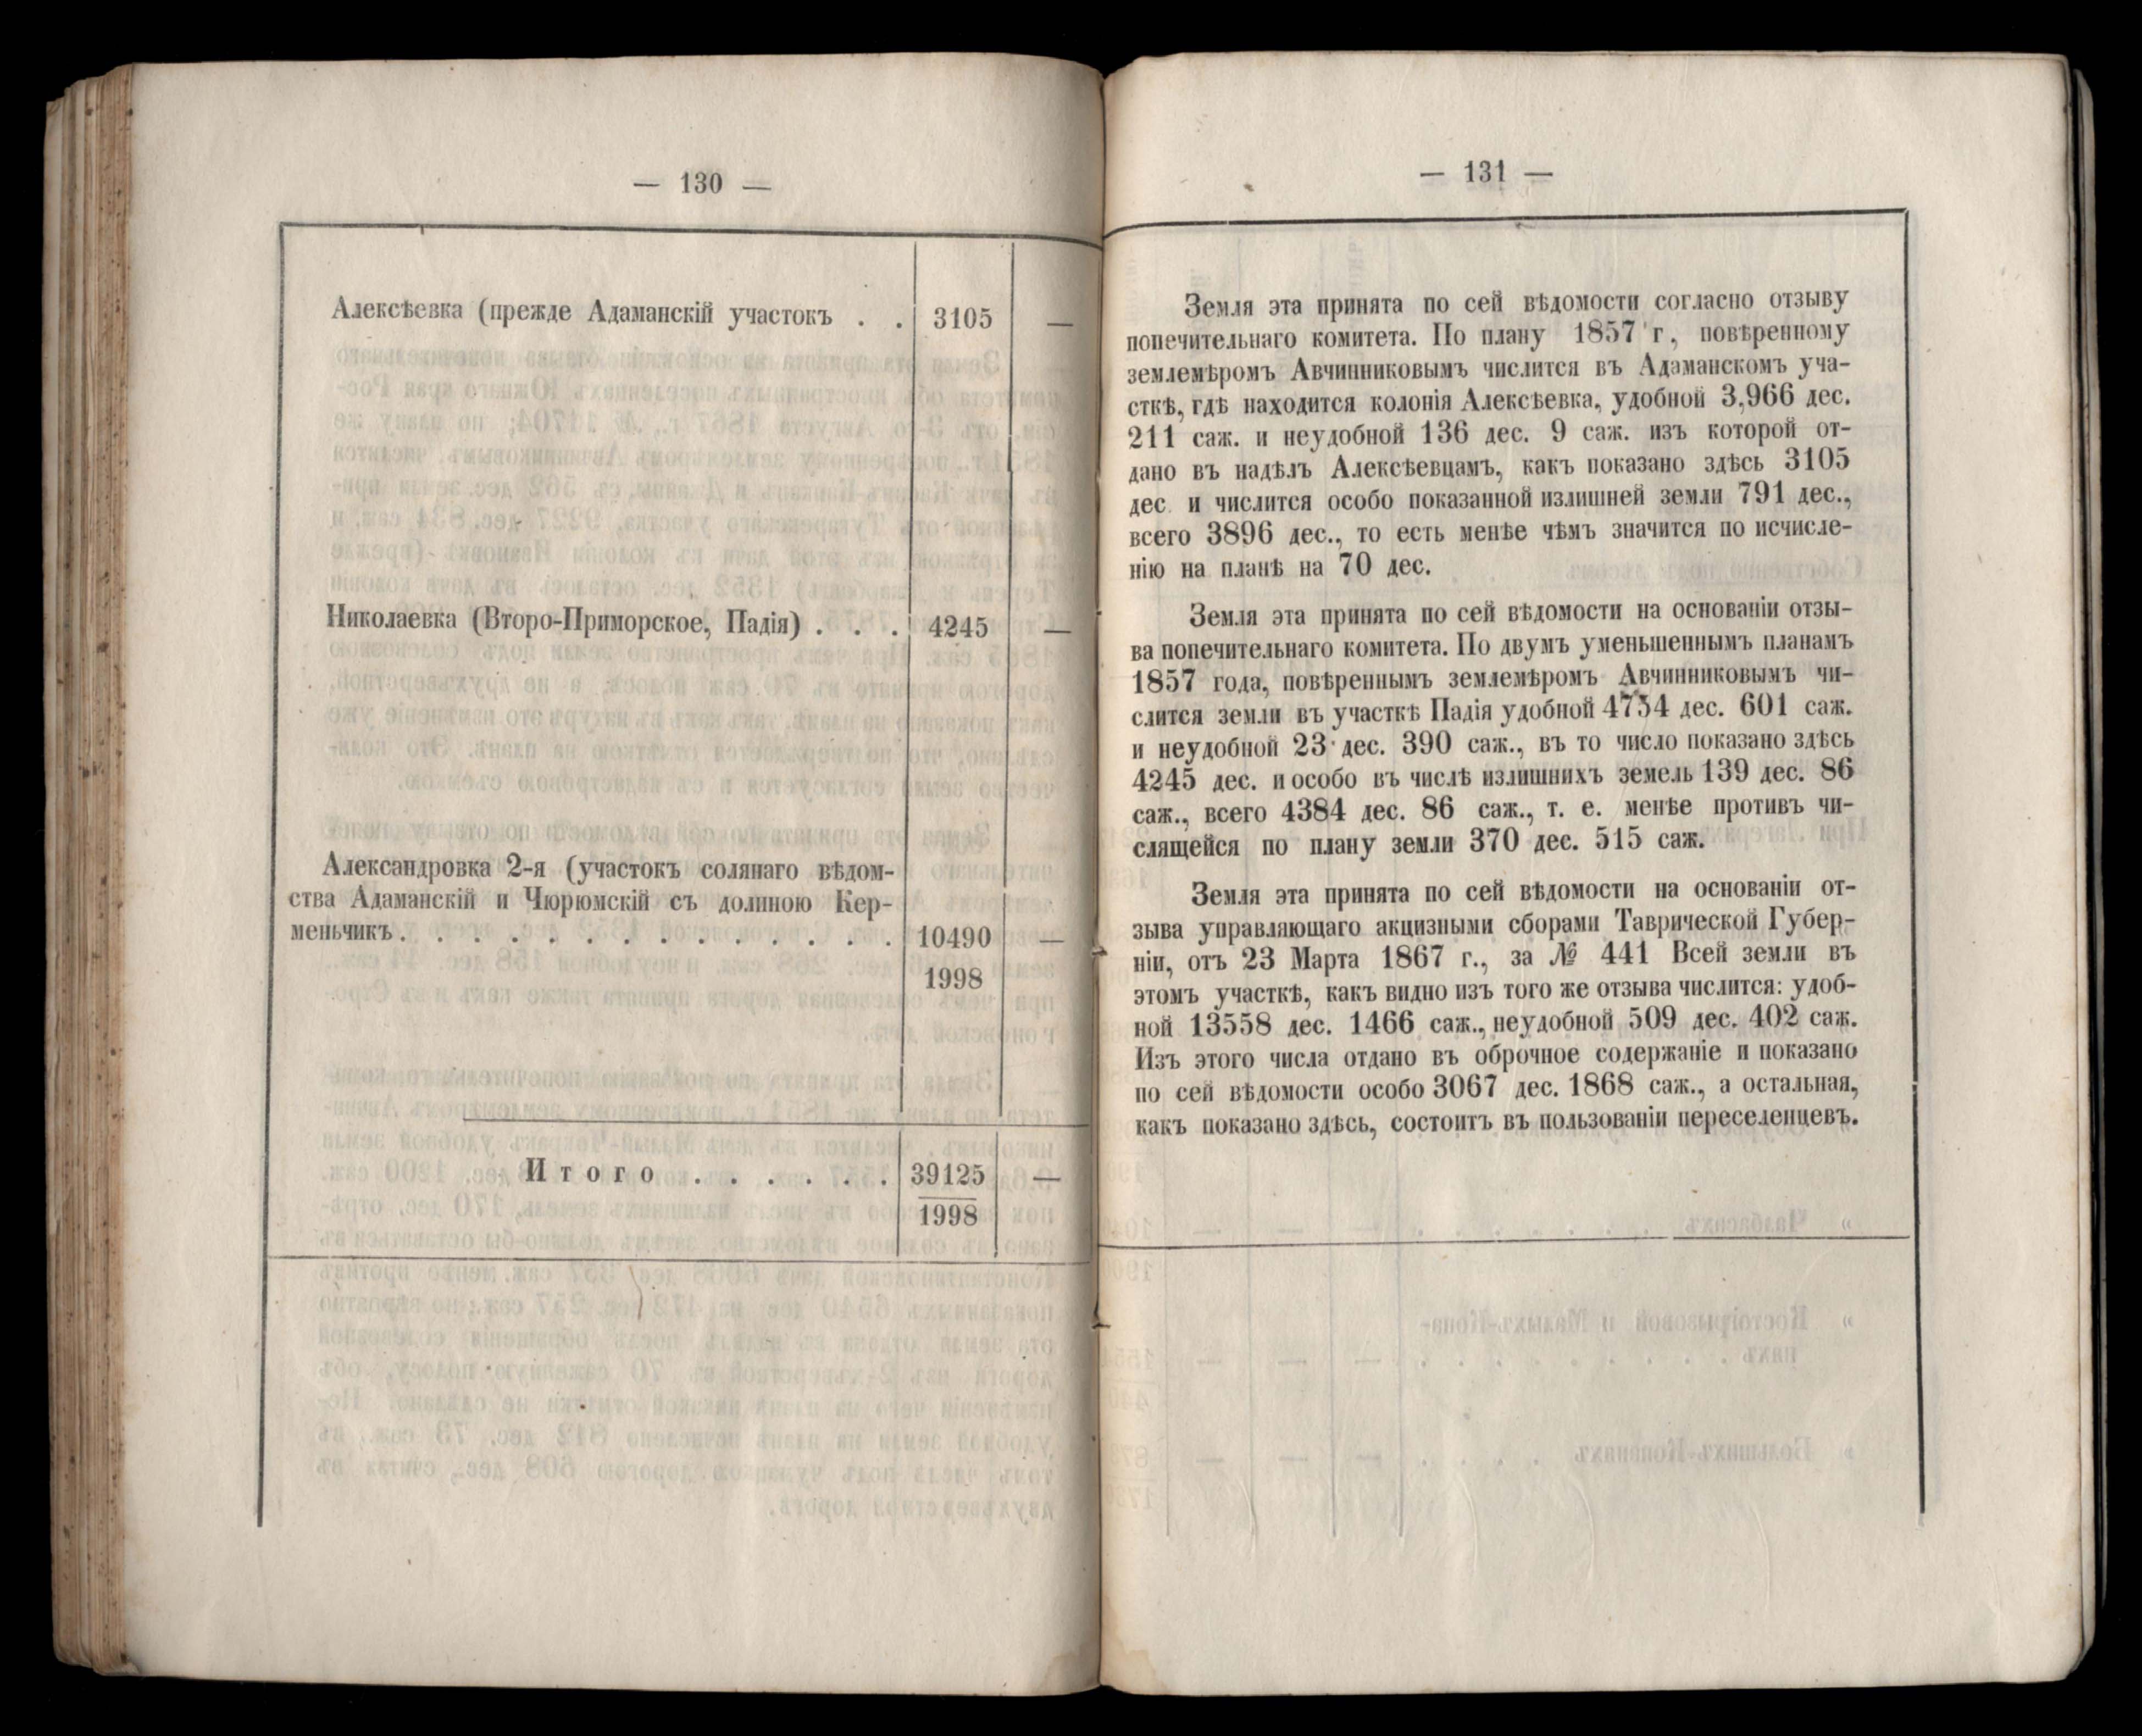 — 130 —
Алексѣевка (прежде Адаманскій участокъ . . 3105 —
Николаевка (Второ-Приморское, Падія) . . . 4245 —
Александровка 2-я (участокъ солянаго вѣдом-
ства Адаманскій и Чюрюмскій съ долиною Кер-
меньчикъ . . . . . . . . . . . . . . 10490 —
1998
Итого . . . . . . 39125 —
1998
— 131 —
Земля эта принята по сей вѣдомости согласно отзыву
попечительнаго комитета. По плану 1857 г, повѣренному
землемѣромъ Авчинниковымъ числится въ Адаманскомъ уча-
сткѣ, гдѣ находится колонія Алексѣевка, удобной 3,966 дес.
211 саж. и неудобной 136 дес. 9 саж. изъ которой от-
дано въ надѣлъ Алексѣевцамъ, какъ показано здѣсь 3105
дес. и числится особо показанной излишней земли 791 дес.,
всего 3896 дес., то есть менѣе чѣмъ значится по исчисле-
нію на планѣ на 70 дес.
Земля эта принята по сей вѣдомости на основаніи отзы-
ва попечительнаго комитета. По двумъ уменьшеннымъ планамъ
1857 года, повѣреннымъ землемѣромъ Авчинниковымъ чи-
слится земли въ участкѣ Падія удобной 4754 дес. 601 саж.
и неудобной 23 дес. 390 саж., въ то число показано здѣсь
4245 дес. и особо въ числѣ излишнихъ земель 139 дес. 86
саж., всего 4384 дес. 86 саж., т. е. менѣе противъ чи-
слящейся по плану земли 370 дес. 515 саж.
Земля эта принята по сей вѣдомости на основаніи от-
зыва управляющаго акцизными сборами Таврической Губер-
ніи, отъ 23 Марта 1867 г., за № 441 Всей земли въ
этомъ участкѣ, какъ видно изъ того же отзыва числится: удоб-
ной 13558 дес. 1466 саж., неудобной 509 дес. 402 саж.
Изъ этого числа отдано въ оброчное содержаніе и показано
по сей вѣдомости особо 3067 дес. 1868 саж., а остальная,
какъ показано здѣсь, состоитъ въ пользованіи переселенцевъ.